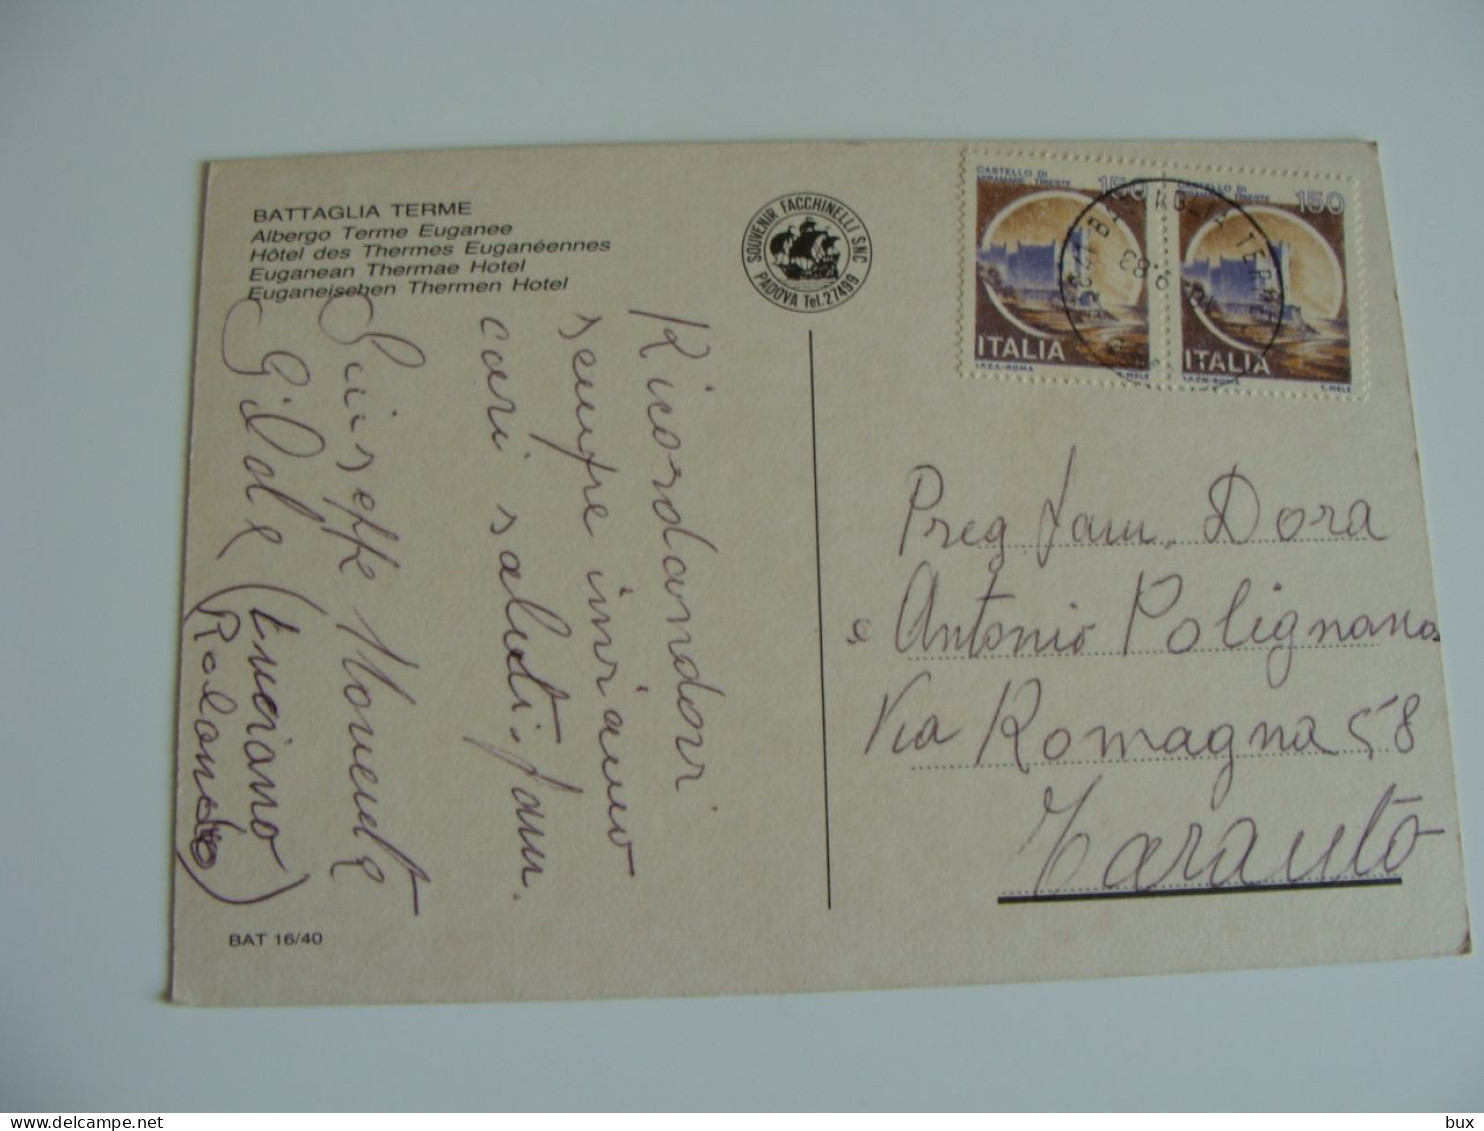 BATTAGLIA TERME
Albergo Terme Euganee
Hôtel des Thermes Euganéennes
Euganean Thermae Hotel
Euganeisehen Thermen Hotel
SOUVENIR FACCHINELLI SNC
PADOVA Tel. 27499
CASTELLO DI
MIRAMARE TRIESTE
150
ITALIA
I.P.Z.S.-ROMA
T. MELE
CASTELLO DI
MIRAMARE TRIESTE
150
ITALIA
I.P.Z.S.-ROMA
T. MELE
Ricordandovi
sempre inviamo
cari saluti. fam.
Giuseppe
Gilda (Luciano
Rolando)
Preg. fam. Dora
e Antonio Polignano
Via Romagna 58
Taranto
BAT 16/40
bux
www.delcampe.net